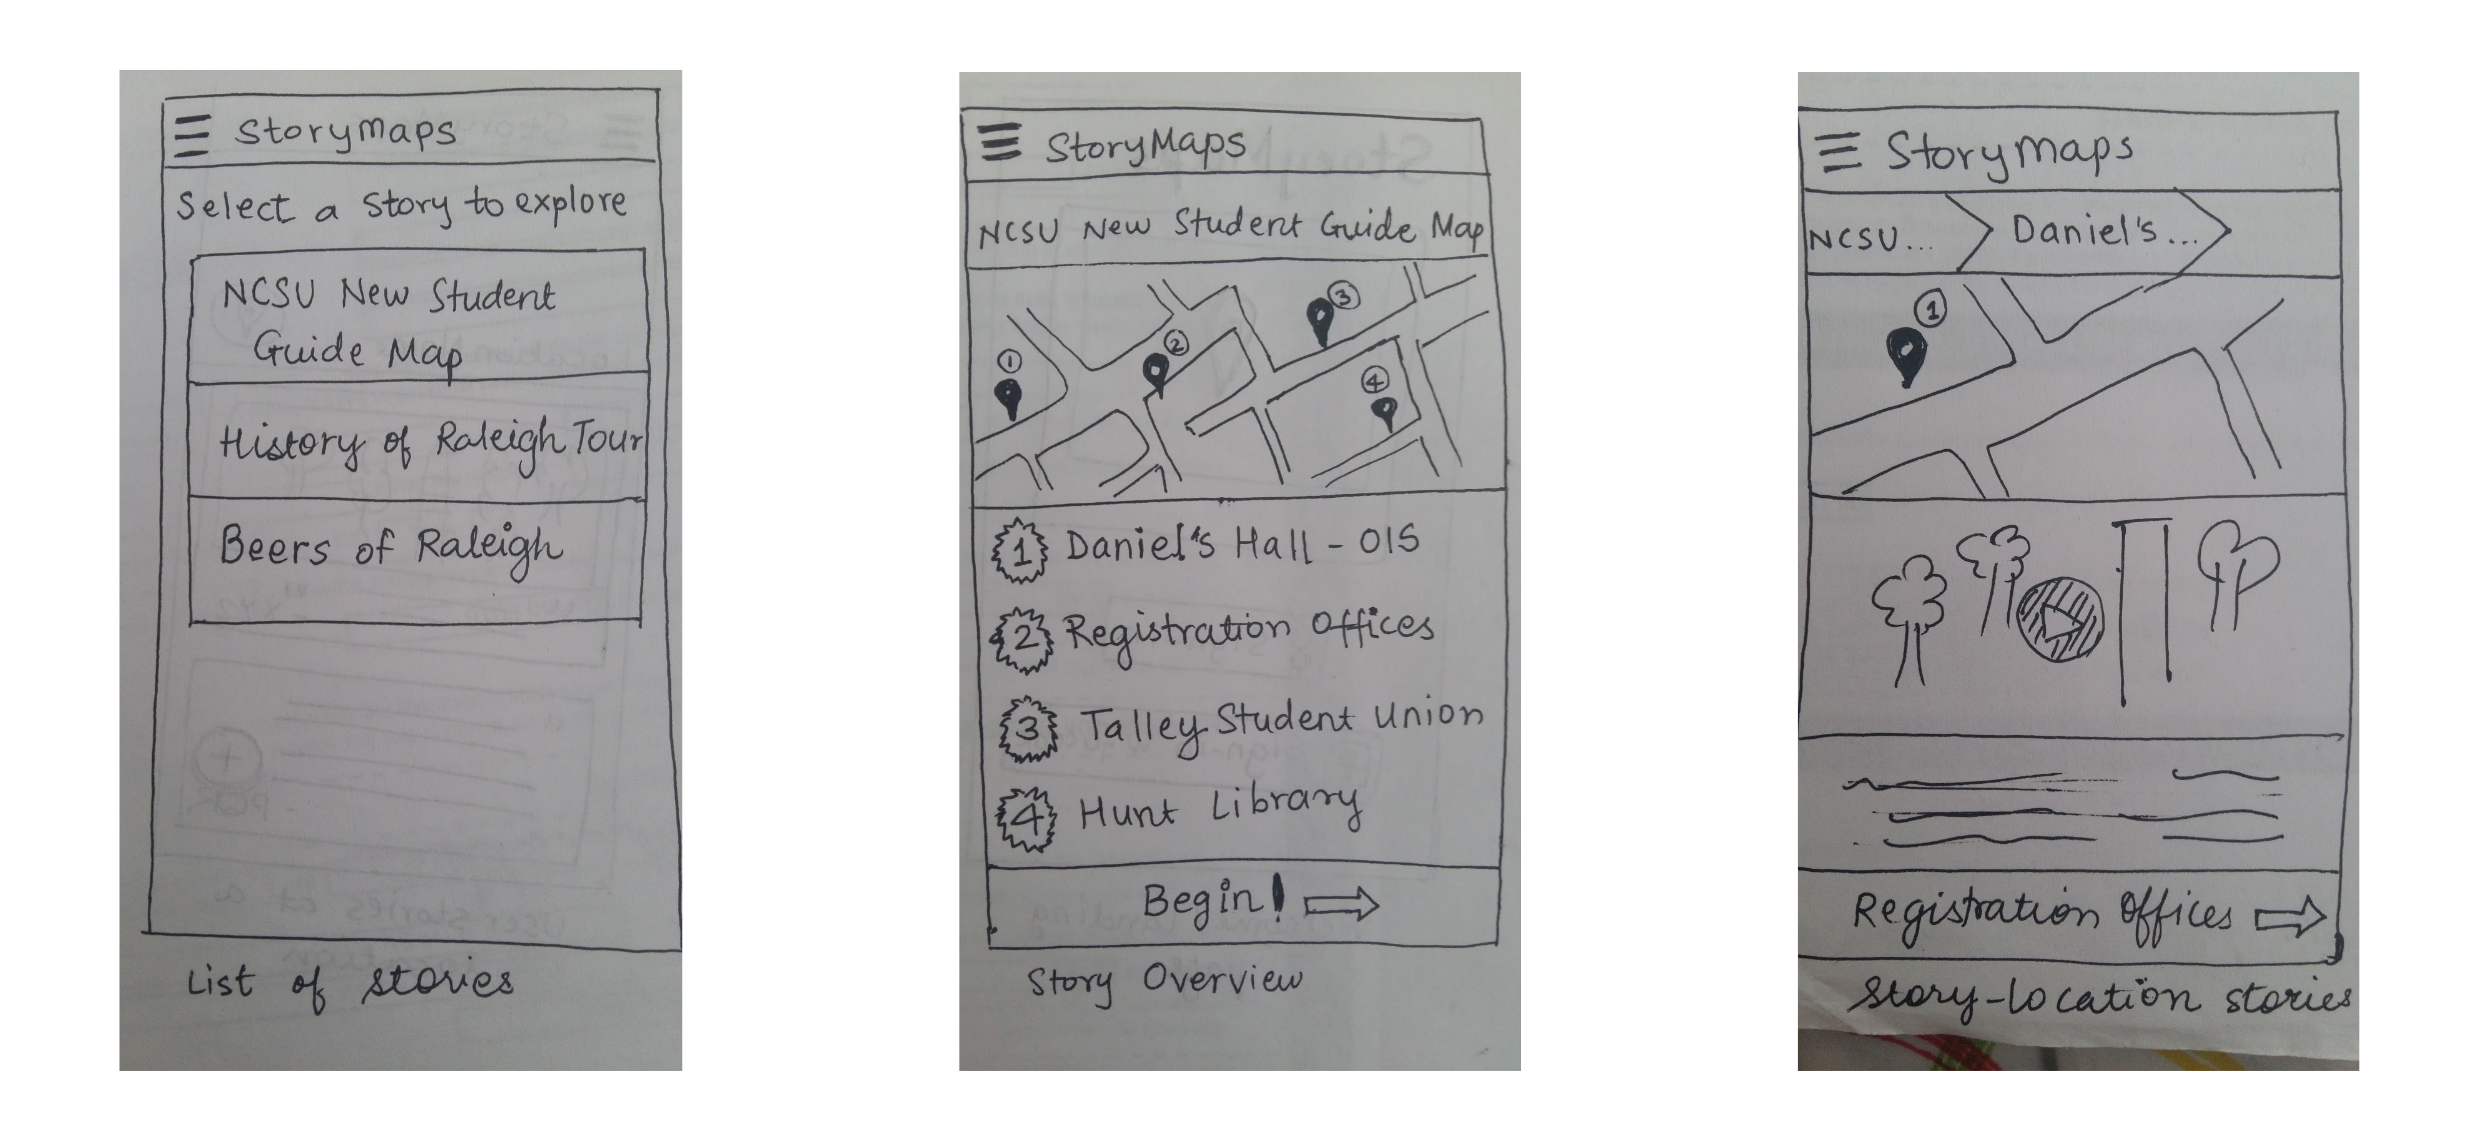 Storymaps
Select a story to explore
NCSU New Student
Guide Map
History of Raleigh Tour
Beers of Raleigh
List of stories
StoryMaps
NCSU New Student Guide Map
1
2
3
4
1 Daniel's Hall - OIS
2 Registration Offices
3 Talley Student Union
4 Hunt Library
Begin!
Story Overview
Storymaps
NCSU... Daniel's...
1
Registration Offices
Story-location stories